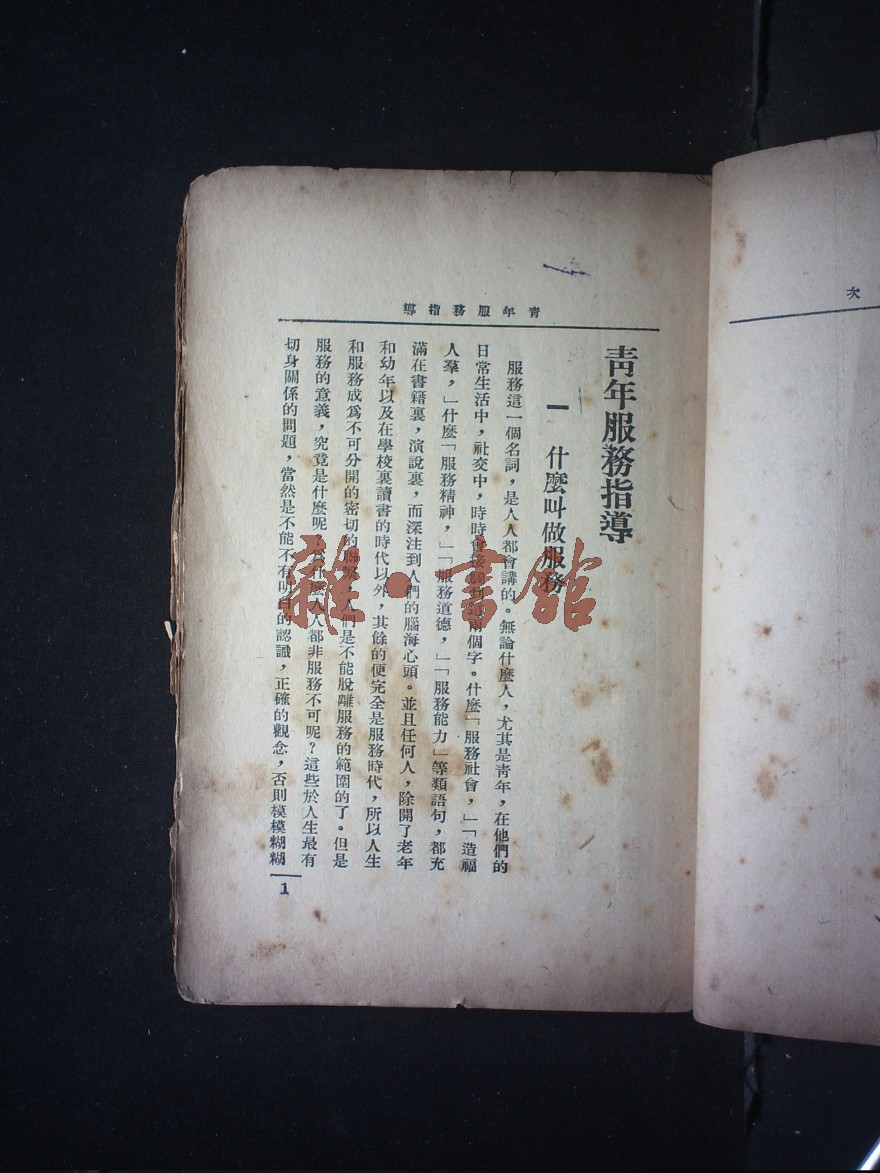 次
青年服務指導
青年服務指導
一 什麼叫做服務
服務這一個名詞，是人人都會講的。無論什麼人，尤其是青年，在他們的
日常生活中，社交中，時時會兩個字。什麼「服務社會，」「造福
人羣，」什麼「服務精神，」「服務道德，」「服務能力」等類語句，都充
滿在書籍裏，演說裏，而深注到人們的腦海心頭。並且任何人，除開了老年
和幼年以及在學校裏讀書的時代以外，其餘的便完全是服務時代，所以人生
和服務成爲不可分開的密切的聯繫，人們是不能脫離服務的範圍的了。但是
服務的意義，究竟是什麼呢？爲什麼人人都非服務不可呢？這些於人生最有
切身關係的問題，當然是不能不有明白的認識，正確的觀念，否則模模糊糊
1
雜·書館